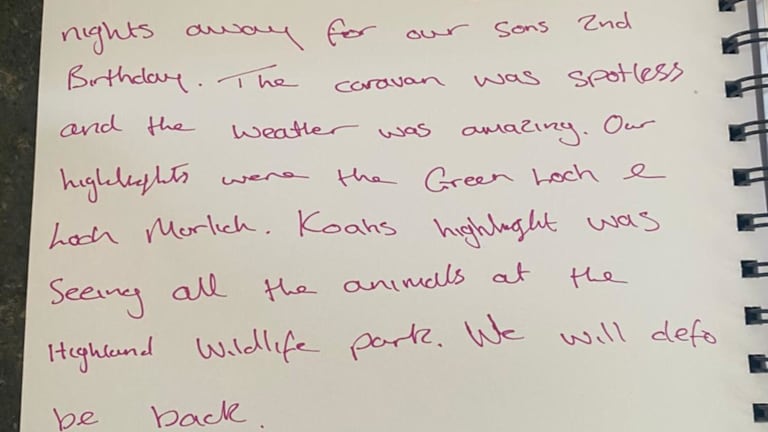 nights away for our sons 2nd
Birthday. The caravan was spotless
and the weather was amazing. Our
highlights were the Green Loch &
Loch Morlich. Koahs highlight was
Seeing all the animals at the
Highland Wildlife park. We will defo
be back.